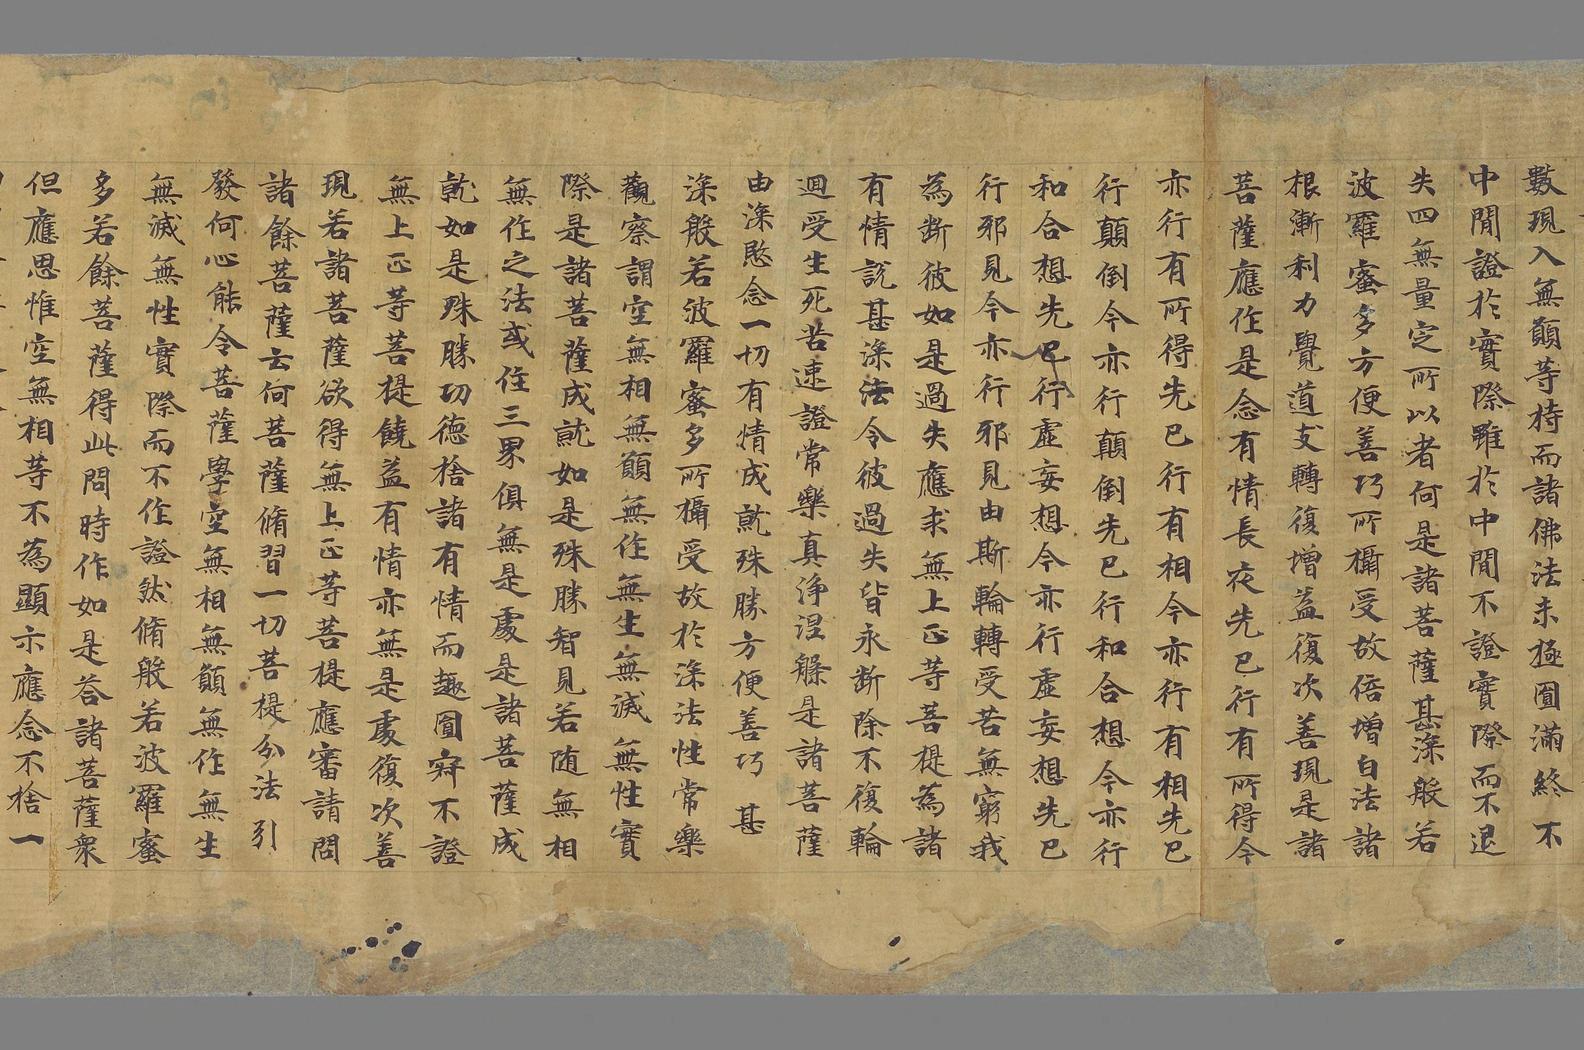 數現入無願等持而諸佛法未極圓滿終不
中閒證於實際雖於中閒不證實際而不退
失四無量定所以者何是諸菩薩甚深般若
波羅蜜多方便善巧所攝受故倍增白法諸
根漸利力覺道支轉復增益復次善現是諸
菩薩應作是念有情長夜先已行有所得今
亦行有所得先已行有相今亦行有相先已
行顛倒今亦行顛倒先已行和合想今亦行
和合想先已行虛妄想今亦行虛妄想先已
行邪見今亦行邪見由斯輪轉受苦無窮我
為斷彼如是過失應求無上正等菩提為諸
有情說甚深法令彼過失皆永斷除不復輪
迴受生死苦速證常樂真淨涅槃是諸菩薩
由深愍念一切有情成就殊勝方便善巧甚
深般若波羅蜜多所攝受故於深法性常樂
觀察謂空無相無願無作無生無滅無性實
際是諸菩薩成就如是殊勝智見若隨無相
無作之法或住三界俱無是處是諸菩薩成
就如是殊勝功德捨諸有情而趣圓寂不證
無上正等菩提饒益有情亦無是處復次善
現若諸菩薩欲得無上正等菩提應審請問
諸餘菩薩云何菩薩脩習一切菩提分法引
發何心能令菩薩學空無相無願無作無生
無滅無性實際而不作證然脩般若波羅蜜
多若餘菩薩得此問時作如是答諸菩薩眾
但應思惟空無相等不為顯示應念不捨一